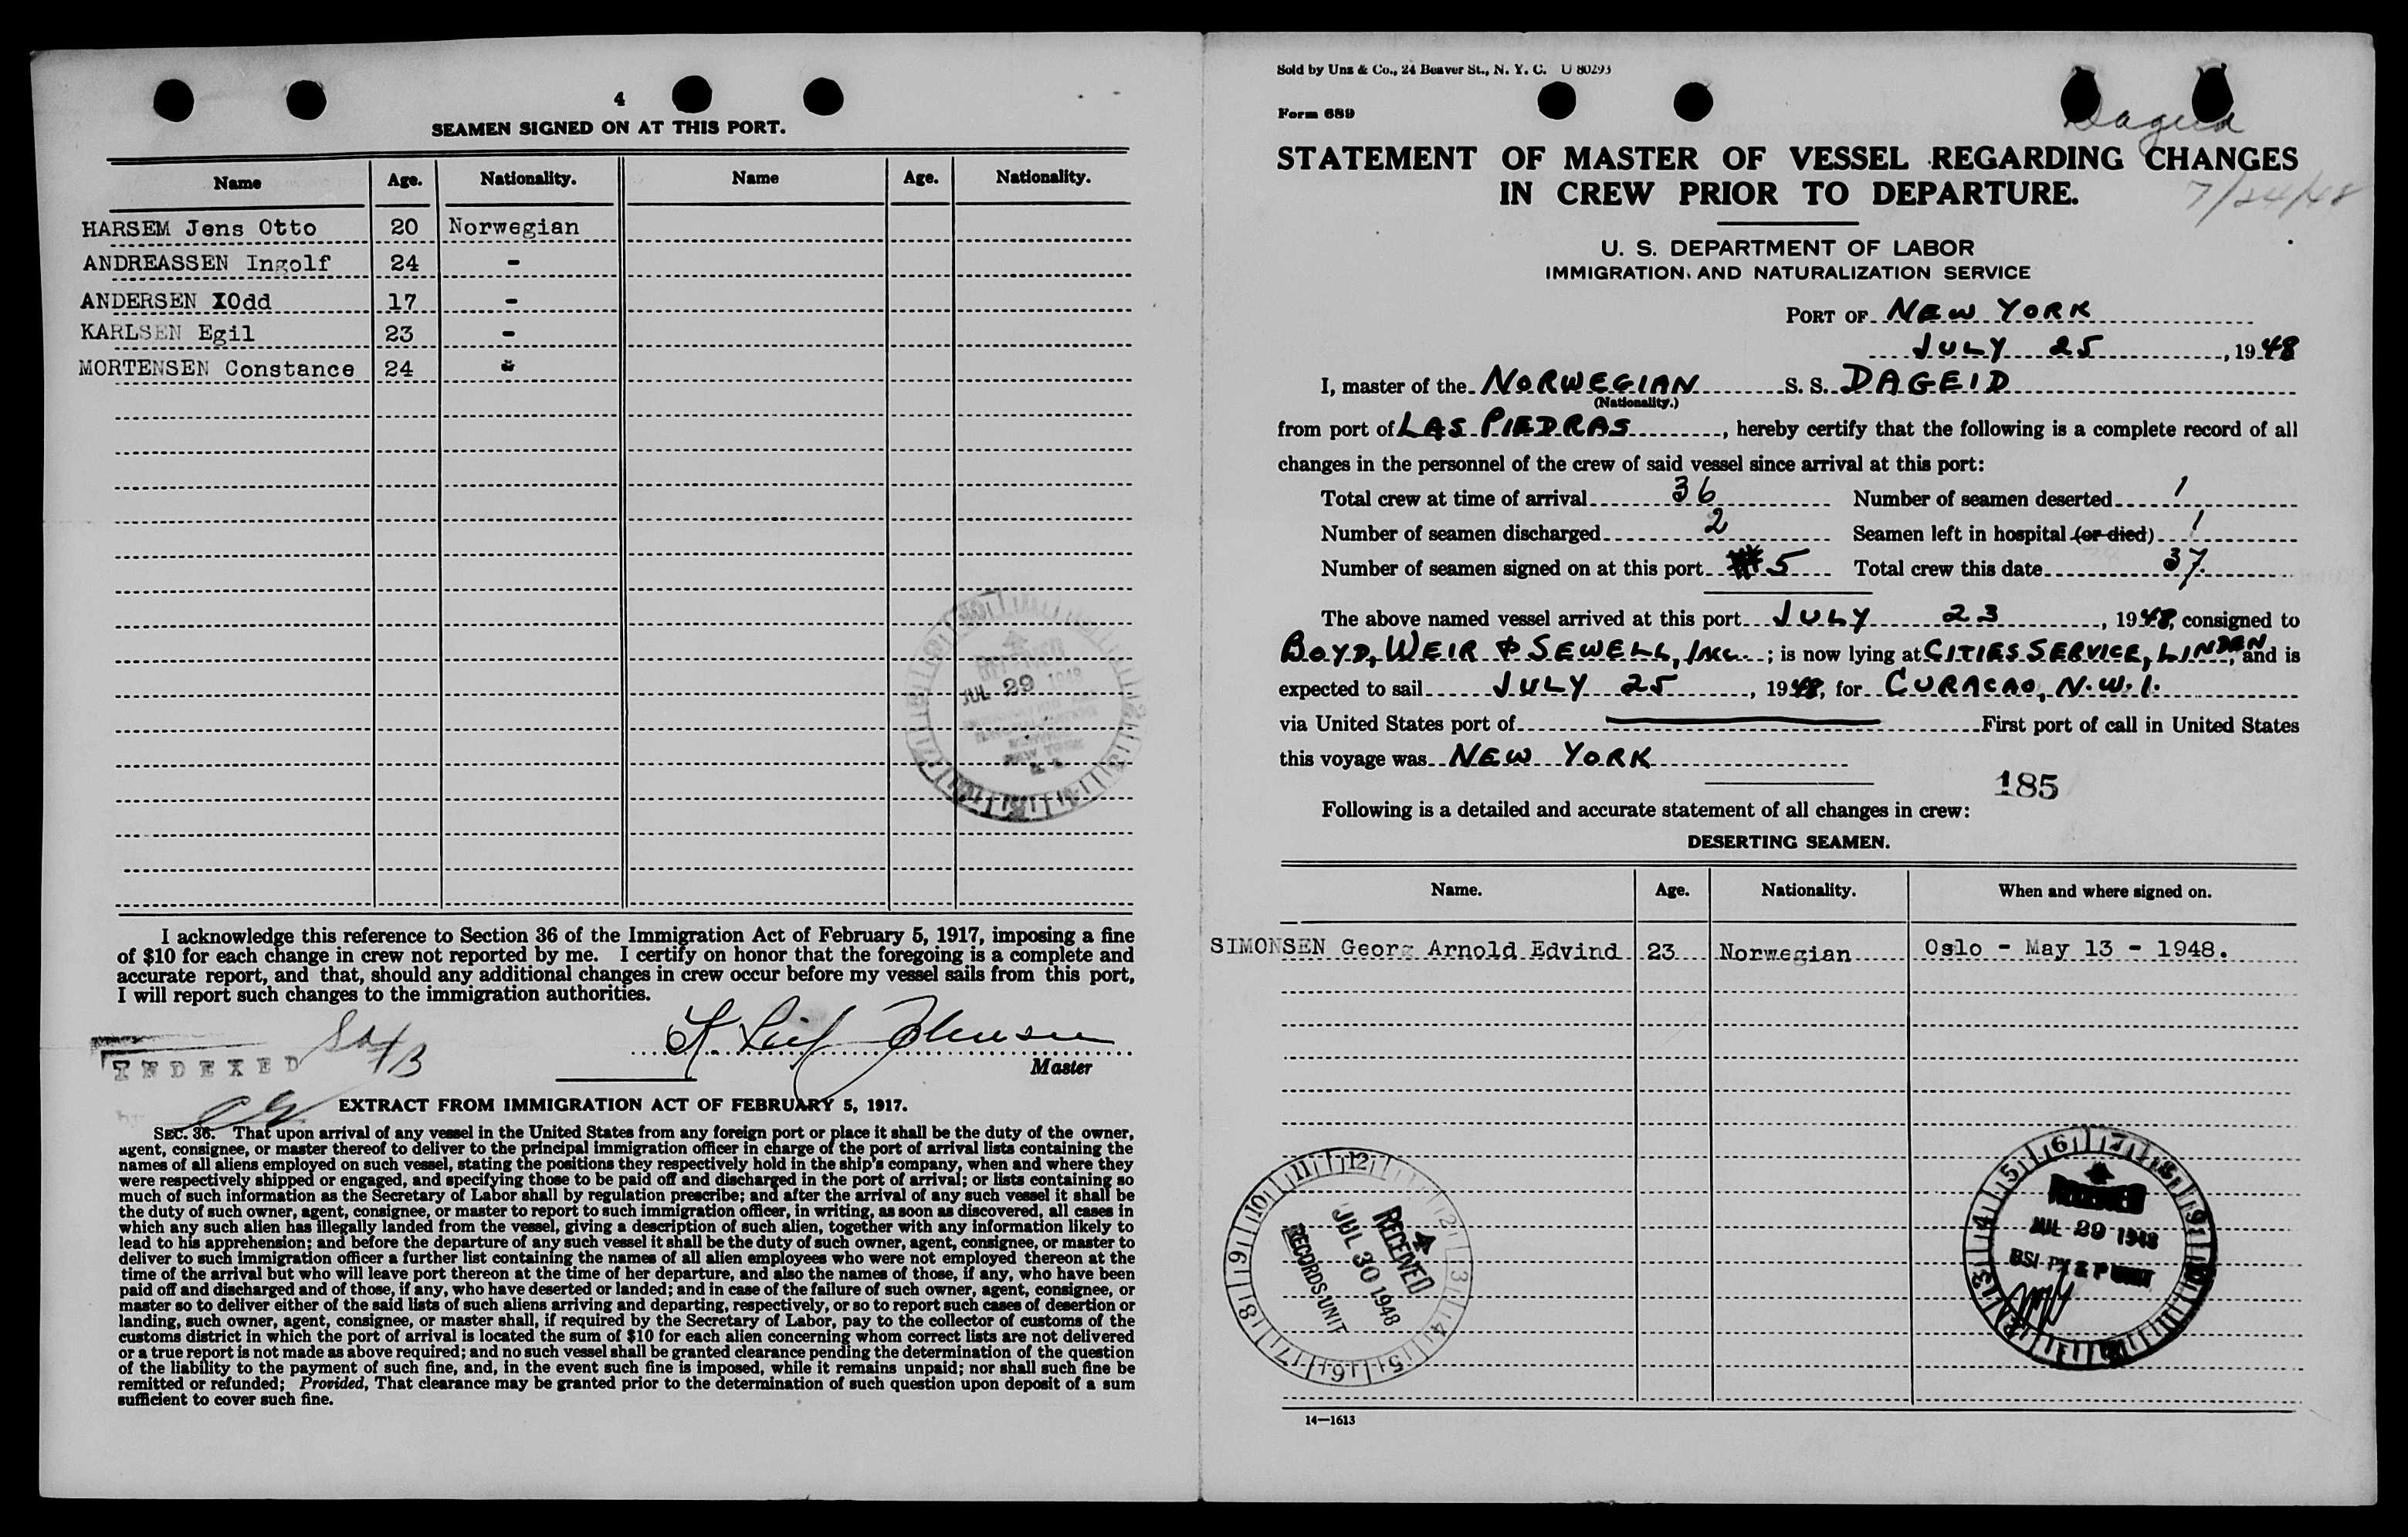 4
SEAMEN SIGNED ON AT THIS PORT.
Name Age. Nationality. Name Age. Nationality.
HARSEM Jens Otto 20 Norwegian
ANDREASSEN Ingolf 24 -
ANDERSEN XOdd 17 -
KARLSEN Egil 23 -
MORTENSEN Constance 24
RECEIVED
JUL 29 1948
I acknowledge this reference to Section 36 of the Immigration Act of February 5, 1917, imposing a fine
of $10 for each change in crew not reported by me. I certify on honor that the foregoing is a complete and
accurate report, and that, should any additional changes in crew occur before my vessel sails from this port,
I will report such changes to the immigration authorities.
Master
INDEXED
EXTRACT FROM IMMIGRATION ACT OF FEBRUARY 5, 1917.
SEC. 36. That upon arrival of any vessel in the United States from any foreign port or place it shall be the duty of the owner,
agent, consignee, or master thereof to deliver to the principal immigration officer in charge of the port of arrival lists containing the
names of all aliens employed on such vessel, stating the positions they respectively hold in the ship's company, when and where they
were respectively shipped or engaged, and specifying those to be paid off and discharged in the port of arrival; or lists containing so
much of such information as the Secretary of Labor shall by regulation prescribe; and after the arrival of any such vessel it shall be
the duty of such owner, agent, consignee, or master to report to such immigration officer, in writing, as soon as discovered, all cases in
which any such alien has illegally landed from the vessel, giving a description of such alien, together with any information likely to
lead to his apprehension; and before the departure of any such vessel it shall be the duty of such owner, agent, consignee, or master to
deliver to such immigration officer a further list containing the names of all alien employees who were not employed thereon at the
time of the arrival but who will leave port thereon at the time of her departure, and also the names of those, if any, who have been
paid off and discharged and of those, if any, who have deserted or landed; and in case of the failure of such owner, agent, consignee, or
master so to deliver either of the said lists of such aliens arriving and departing, respectively, or so to report such cases of desertion or
landing, such owner, agent, consignee, or master shall, if required by the Secretary of Labor, pay to the collector of customs of the
customs district in which the port of arrival is located the sum of $10 for each alien concerning whom correct lists are not delivered
or a true report is not made as above required; and no such vessel shall be granted clearance pending the determination of the question
of the liability to the payment of such fine, and, in the event such fine is imposed, while it remains unpaid; nor shall such fine be
remitted or refunded; Provided, That clearance may be granted prior to the determination of such question upon deposit of a sum
sufficient to cover such fine.
Sold by Unz & Co., 24 Beaver St., N. Y. C. U 80293
Form 689
Dageid
STATEMENT OF MASTER OF VESSEL REGARDING CHANGES
IN CREW PRIOR TO DEPARTURE.
7/24/48
U. S. DEPARTMENT OF LABOR
IMMIGRATION AND NATURALIZATION SERVICE
PORT OF NEW YORK
JULY 25, 1948
I, master of the NORWEGIAN S. S. DAGEID
(Nationality.)
from port of LAS PIEDRAS, hereby certify that the following is a complete record of all
changes in the personnel of the crew of said vessel since arrival at this port:
Total crew at time of arrival 36 Number of seamen deserted 1
Number of seamen discharged 2 Seamen left in hospital (or died) 1
Number of seamen signed on at this port 5 Total crew this date 37.
The above named vessel arrived at this port JULY 23, 1948, consigned to
BOYD, WEIR & SEWELL, INC.; is now lying at CITIES SERVICE, LINDEN, and is
expected to sail JULY 25, 1948, for CURACAO, N.W.I.
via United States port of First port of call in United States
this voyage was NEW YORK
185
Following is a detailed and accurate statement of all changes in crew:
DESERTING SEAMEN.
Name. Age. Nationality. When and where signed on.
SIMONSEN Georg Arnold Edvind 23 Norwegian Oslo - May 13 - 1948.
RECEIVED
JUL 30 1948
RECORDS UNIT
RECEIVED
JUL 29 1948
14—1613